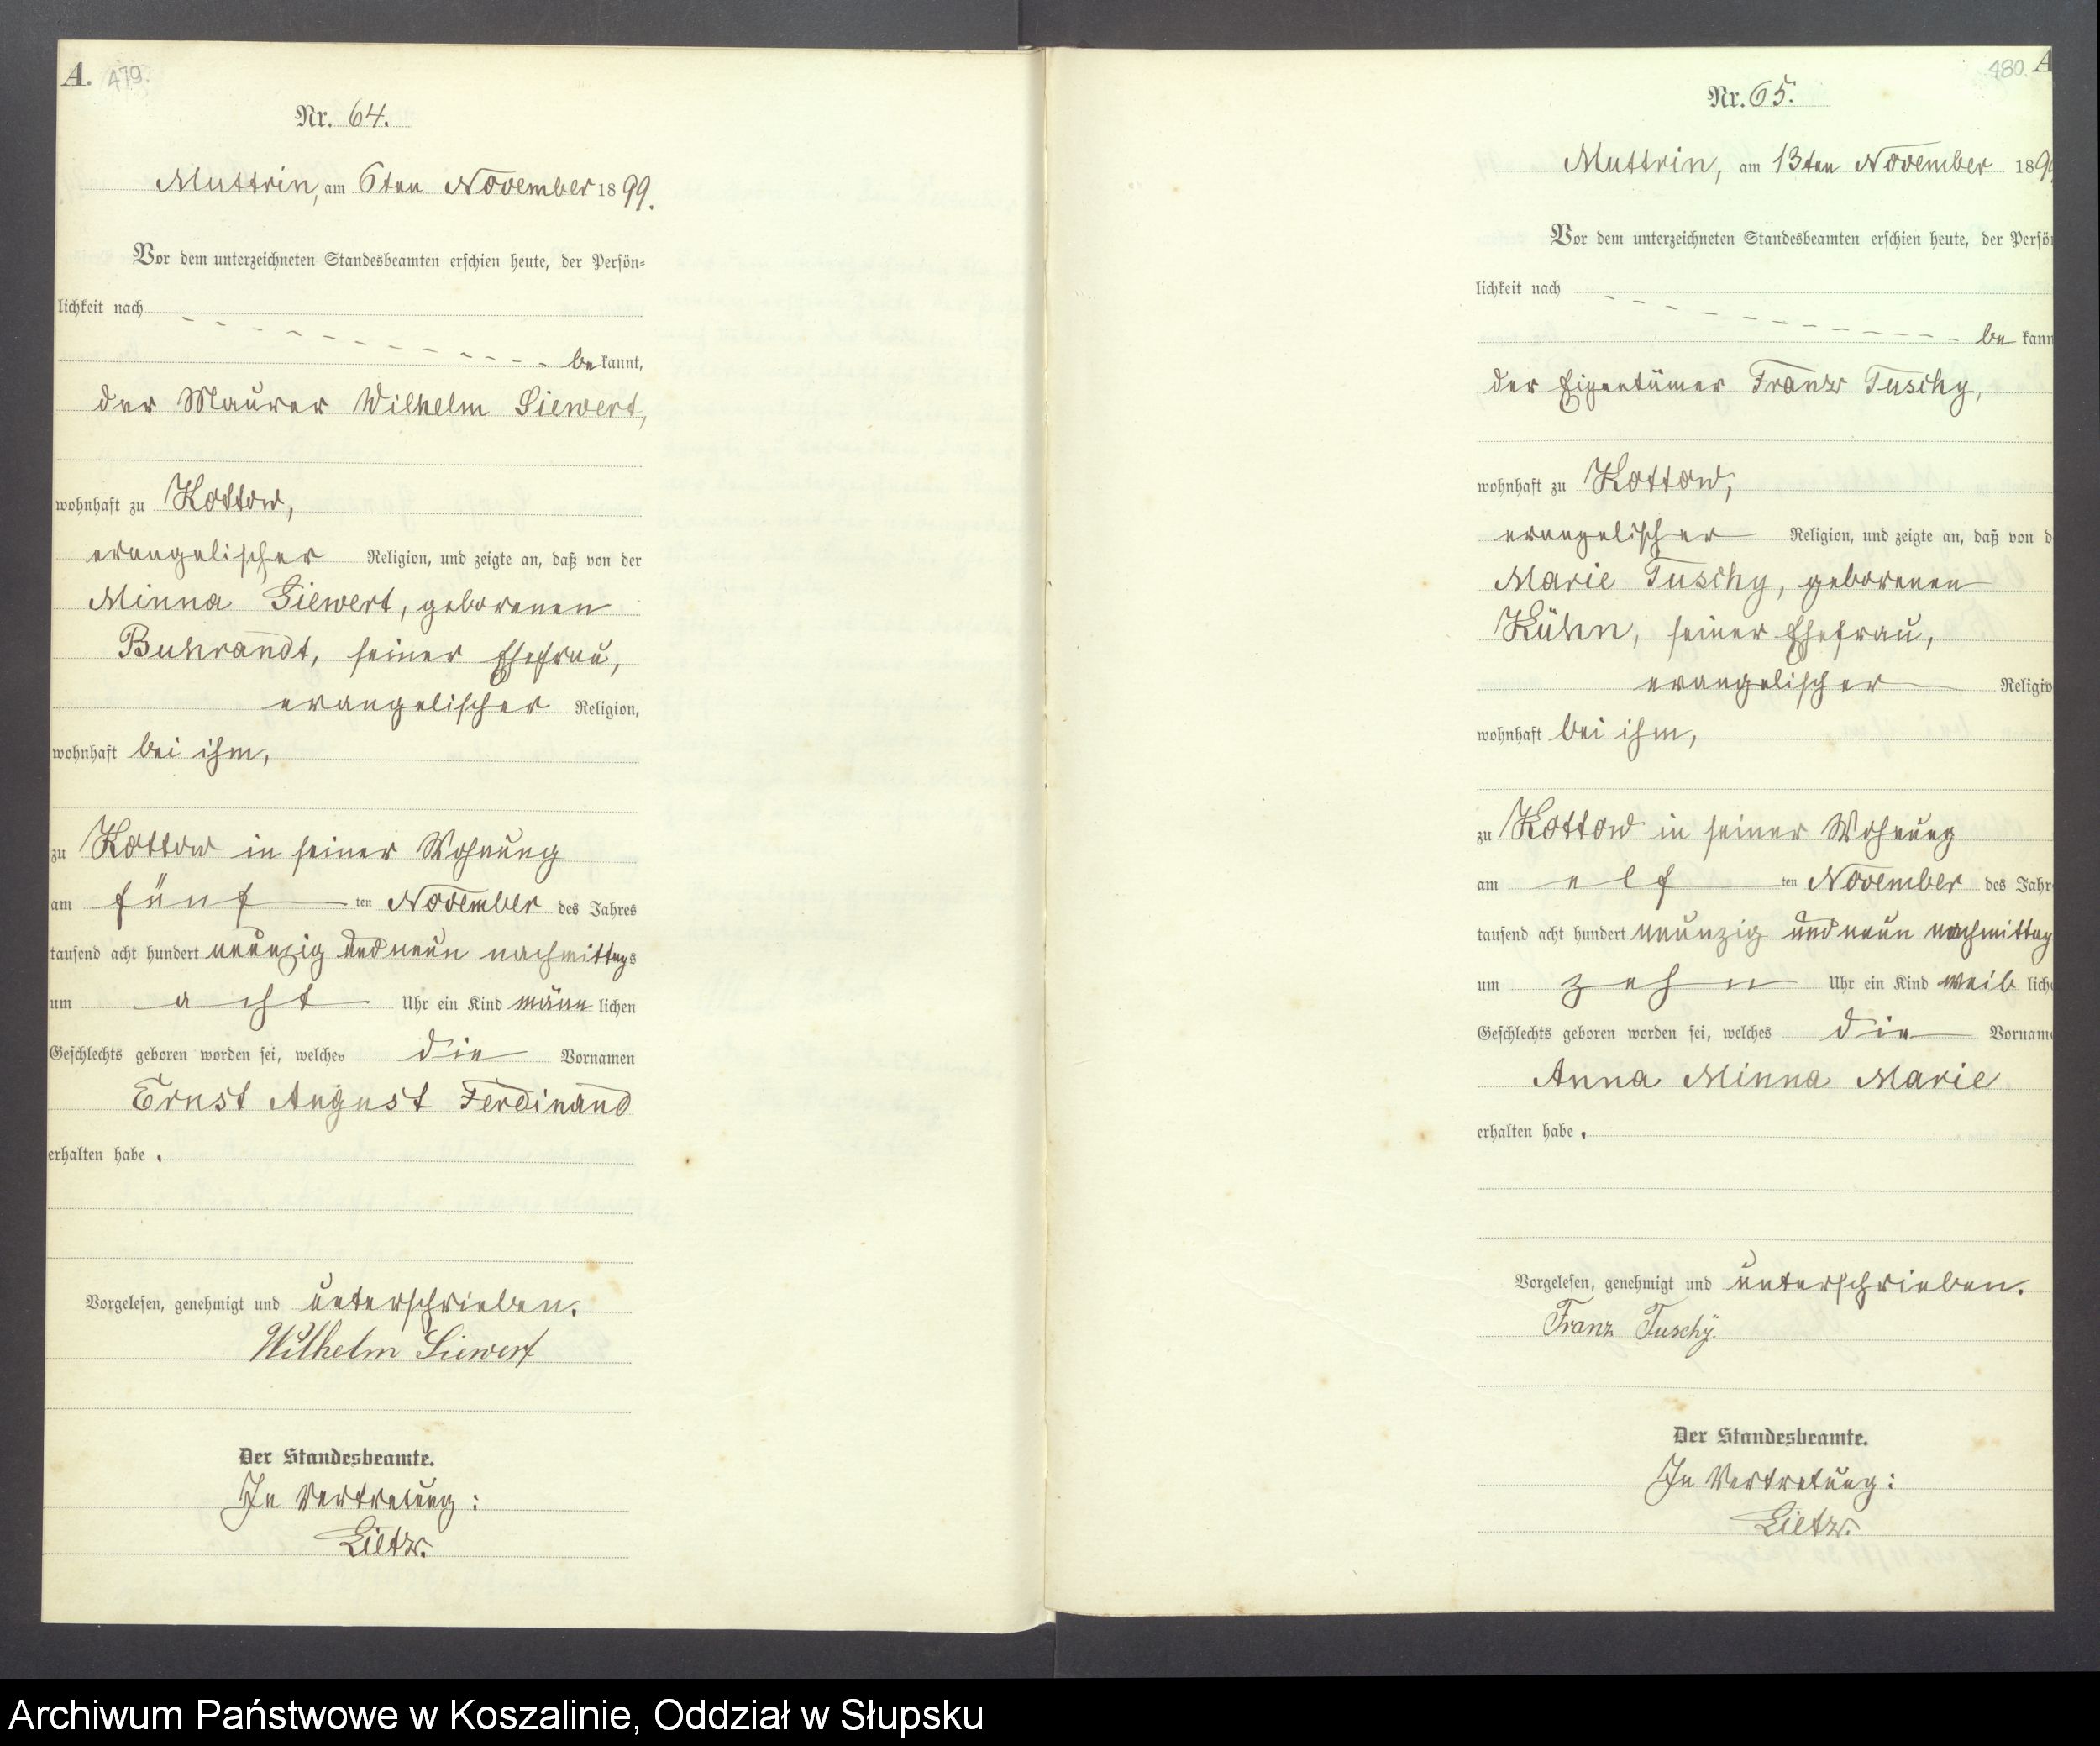 A. 479.
Nr. 64.
Muttrin, am 6ten November 1899.
Vor dem unterzeichneten Standesbeamten erschien heute, der Persön-
lichkeit nach
bekannt,
der Maurer Wilhelm Siewert,
wohnhaft zu Kottow,
evangelischer Religion, und zeigte an, daß von der
Minna Siewert, geborenen
Buhrandt, seiner Ehefrau,
evangelischer Religion,
wohnhaft bei ihm,
zu Kottow in seiner Wohnung
am fünf ten November des Jahres
tausend acht hundert neunzig und neun nachmittags
um acht Uhr ein Kind männlichen
Geschlechts geboren worden sei, welches die Vornamen
Ernst August Ferdinand
erhalten habe.
Vorgelesen, genehmigt und unterschrieben.
Wilhelm Siewert
Der Standesbeamte.
In Vertretung:
Lietz.
480. A
Nr. 65.
Muttrin, am 13ten November 189
Vor dem unterzeichneten Standesbeamten erschien heute, der Persö
lichkeit nach
bekann
der Eigentümer Franz Tuschy,
wohnhaft zu Kottow,
evangelischer Religion, und zeigte an, daß von d
Marie Tuschy, geborenen
Kühn, seiner Ehefrau,
evangelischer Religio
wohnhaft bei ihm,
zu Kottow in seiner Wohnung
am elf ten November des Jahr
tausend acht hundert neunzig und neun nachmittag
um zehn Uhr ein Kind weiblich
Geschlechts geboren worden sei, welches die Vorname
Anna Minna Marie
erhalten habe.
Vorgelesen, genehmigt und unterschrieben.
Franz Tuschÿ.
Der Standesbeamte.
In Vertretung:
Lietz.
Archiwum Państwowe w Koszalinie, Oddział w Słupsku